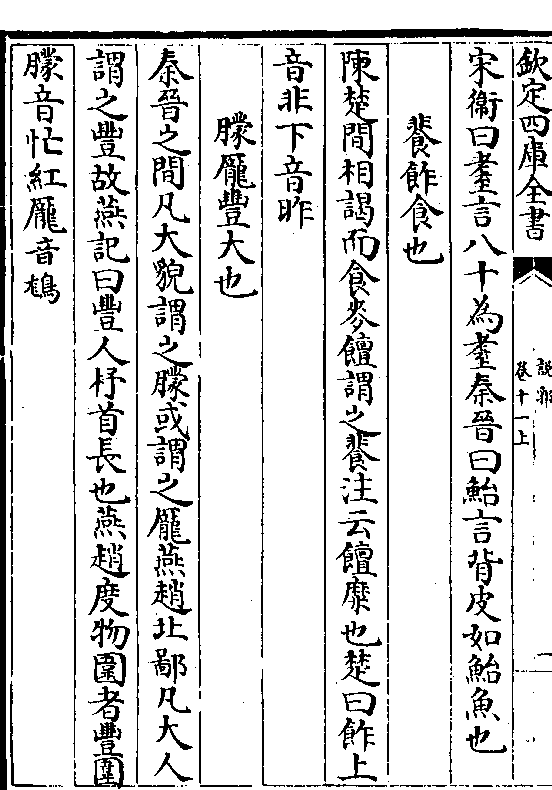 欽定四庫全書
說郛
卷十一上
宋衞曰耊言八十為耊秦晉曰鮐言背皮如鮐魚也
餥飵食也
陳楚間相謁而食麥饘謂之餥注云饘糜也楚曰飵上
音非下音昨
朦厖豐大也
秦晉之間凡大貌謂之朦或謂之厖燕趙北鄙凡大人
謂之豐故燕記曰豐人杼首長也燕趙度物圍者豐圍
朦音忙紅厖音鵚